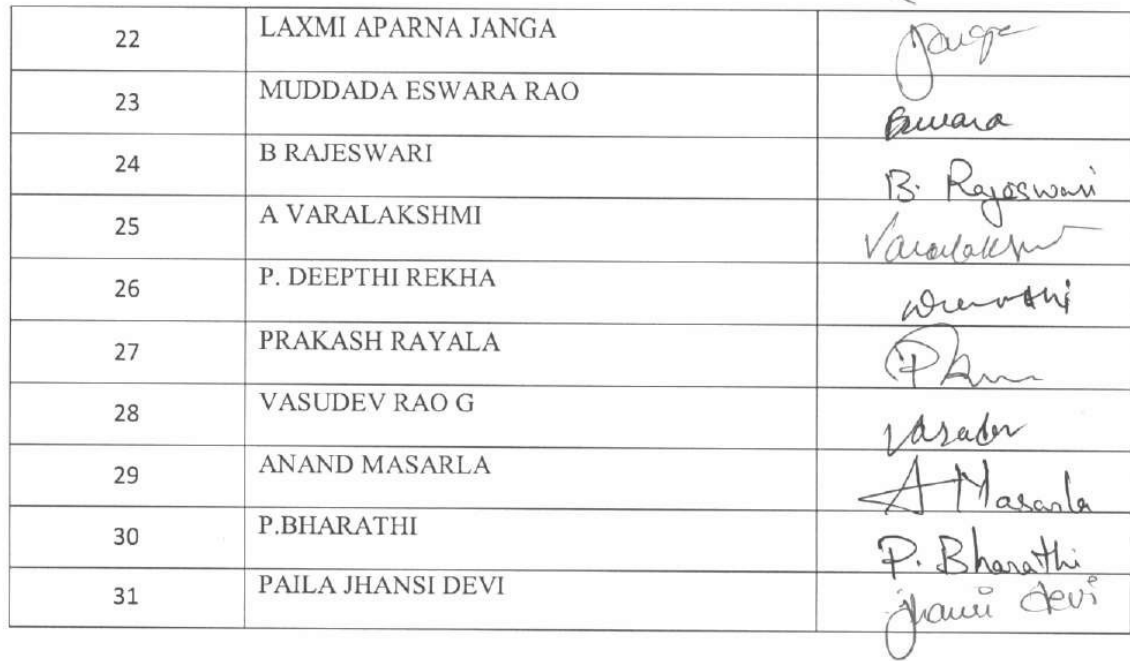 22 LAXMI APARNA JANGA Janga
23 MUDDADA ESWARA RAO Eswara
24 B RAJESWARI B. Rajeswari
25 A VARALAKSHMI Varalakshmi
26 P. DEEPTHI REKHA
27 PRAKASH RAYALA
28 VASUDEV RAO G Vasudev
29 ANAND MASARLA A Masarla
30 P.BHARATHI P. Bharathi
31 PAILA JHANSI DEVI Jhansi Devi